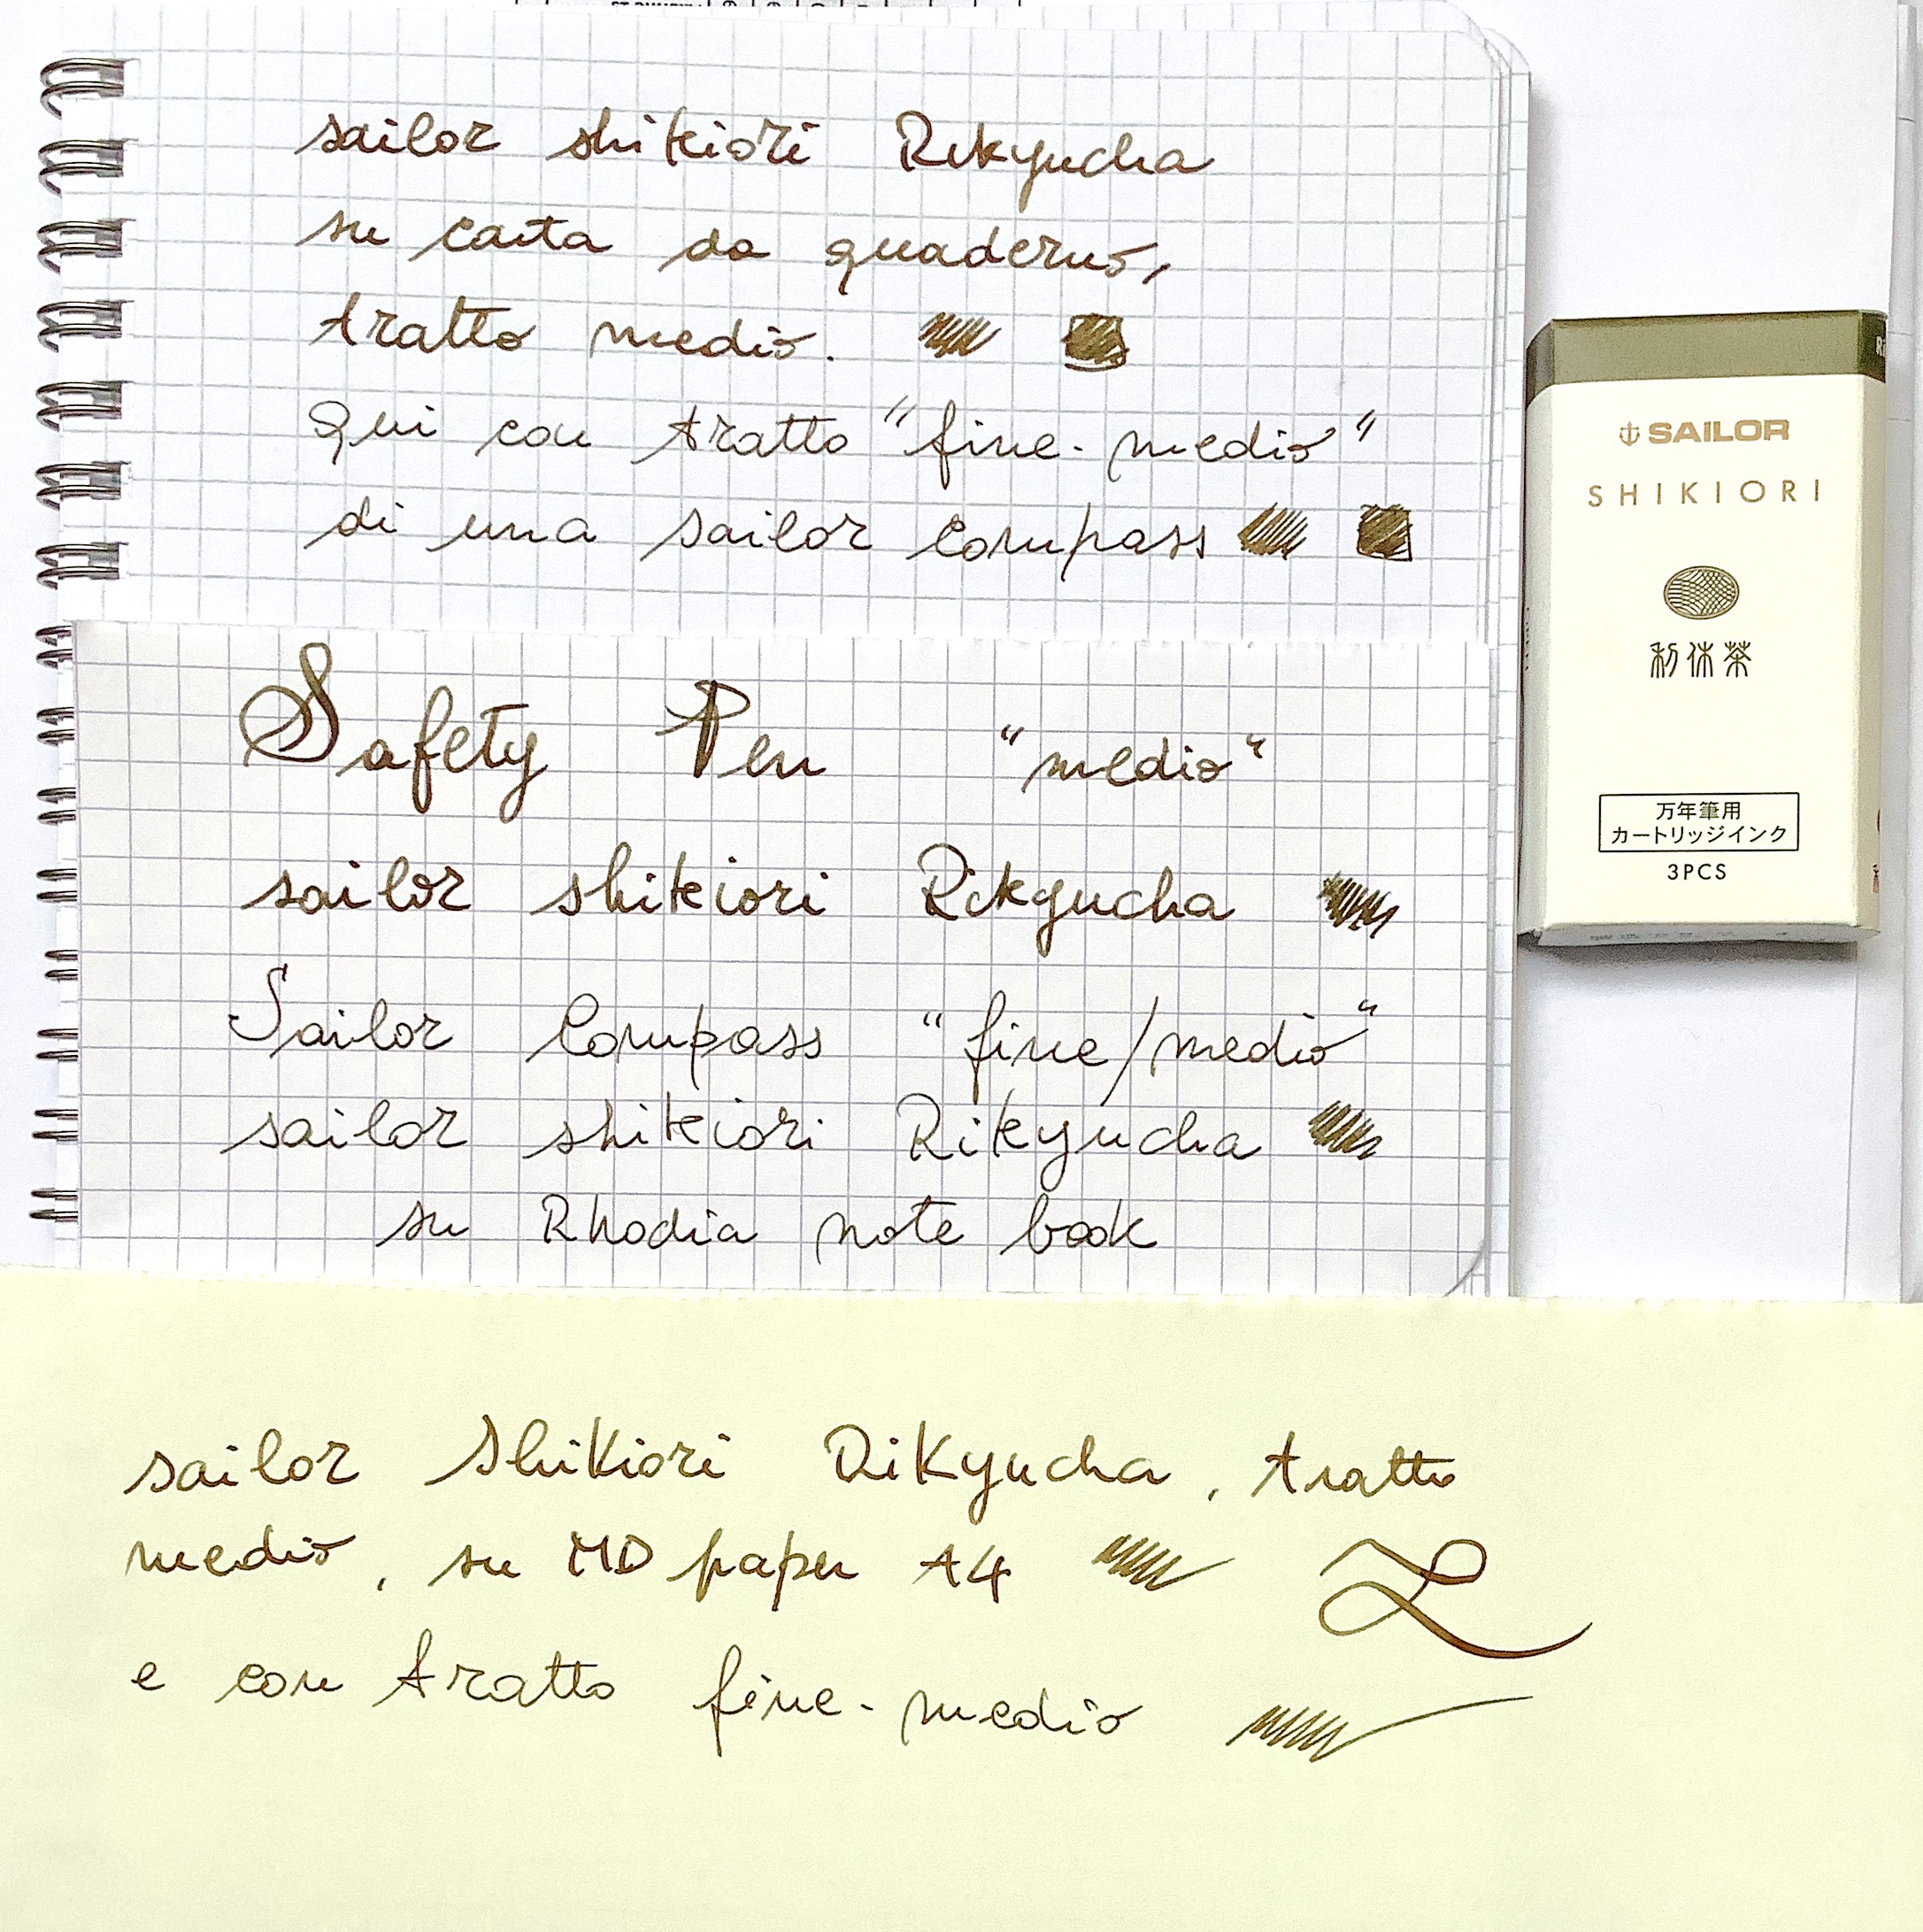 sailor shikiori Rikyucha
su carta da quaderno,
tratto medio.
Qui con tratto "fine-medio"
di una sailor Compass
Safety Pen "medio"
sailor shikiori Rikyucha
Sailor Compass "fine/medio"
sailor shikiori Rikyucha
su Rhodia note book
sailor Shikiori Rikyucha, tratto
medio, su MD paper A4
e con tratto fine-medio
SAILOR
SHIKIORI
利休茶
万年筆用
カートリッジインク
3PCS